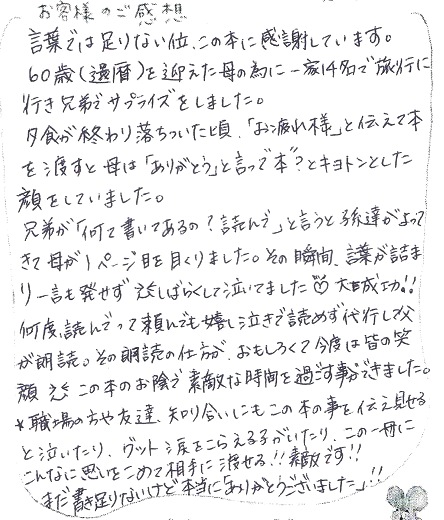 お客様のご感想
言葉では足りない位、この本に感謝しています。
60歳(還暦)を迎えた母の為に一家14名で旅行に
行き兄弟でサプライズをしました。
夕食が終わり落ちついた頃、「お疲れ様」と伝えて本
を渡すと母は「ありがとう」と言って“本”?とキョトンとした
顔をしていました。
兄弟が「何て書いてあるの?読んで」と言うと孫達がよって
きて母が1ページ目を目くりました。その瞬間、言葉が詰ま
り一言も発せず しばらくして泣いてました♡大成功!!
何度、読んでって頼んでも嬉し泣きで読めず代行して父
が朗読。その朗読の仕方が、おもしろくて今度は皆の笑
顔 この本のお陰で素敵な時間を過ごす事ができました。
*職場の方や友達、知り合いにもこの本の事を伝え見せる
と泣いたり、グット涙をこらえる子がいたり、この一冊に
こんなに思いをこめて相手に渡せる!!素敵です!!
まだ書き足りないけど本当に「ありがとうございました」!!